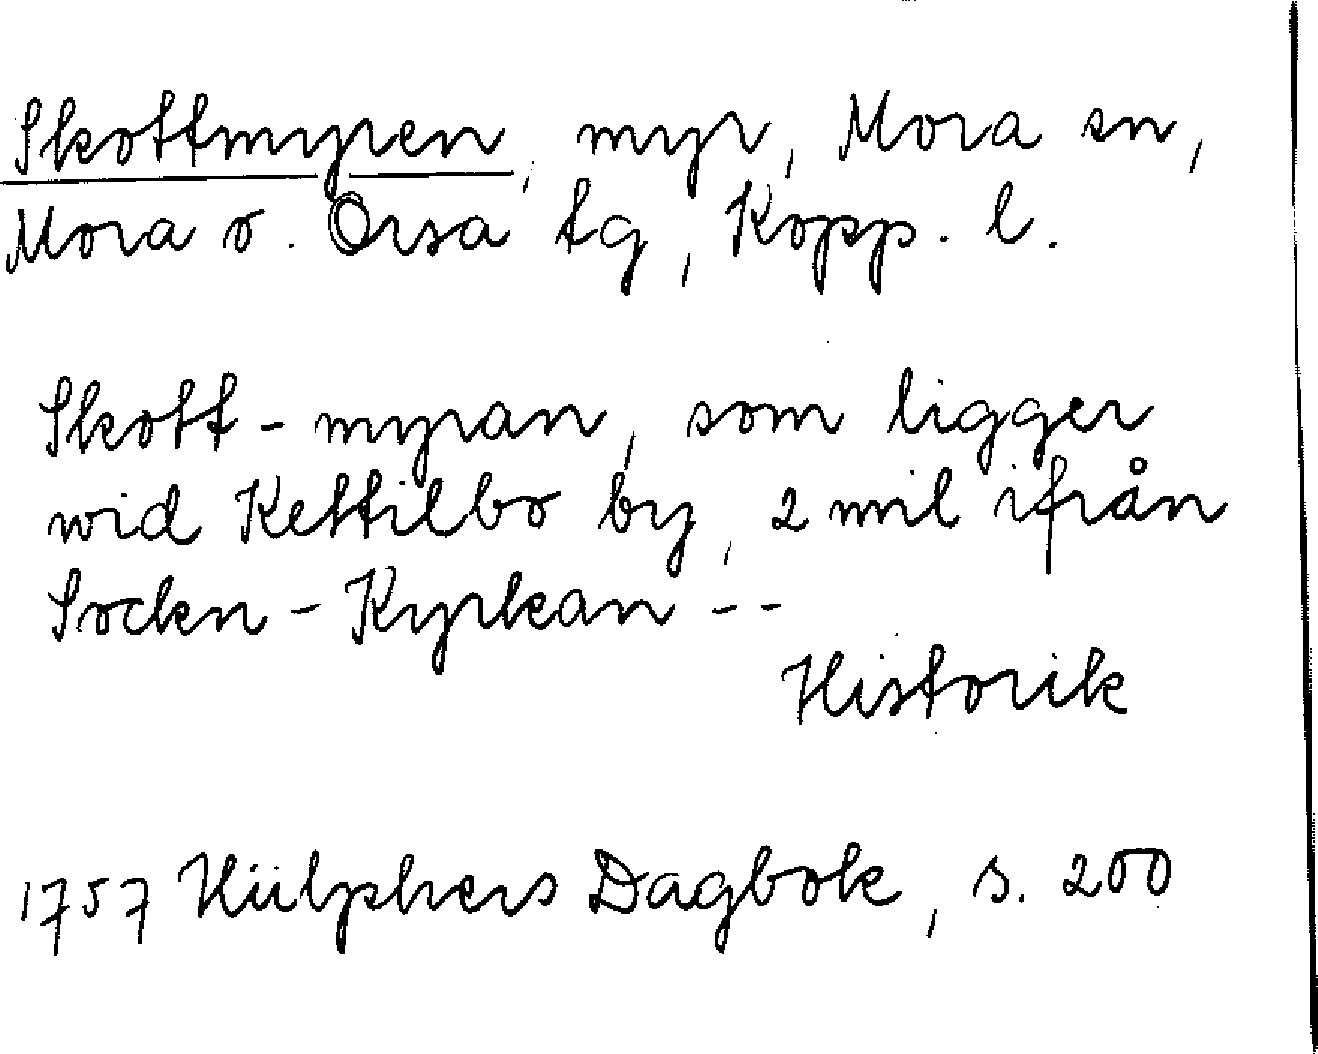 Skottmyren, myr, Mora sn,
Mora o. Orsa tg, Kopp. l.
Skott-myran, som ligger
wid Kettilbo by, 2 mil ifrån
Sockn-Kyrkan --
Historik
1757 Hülphers Dagbok, s. 200